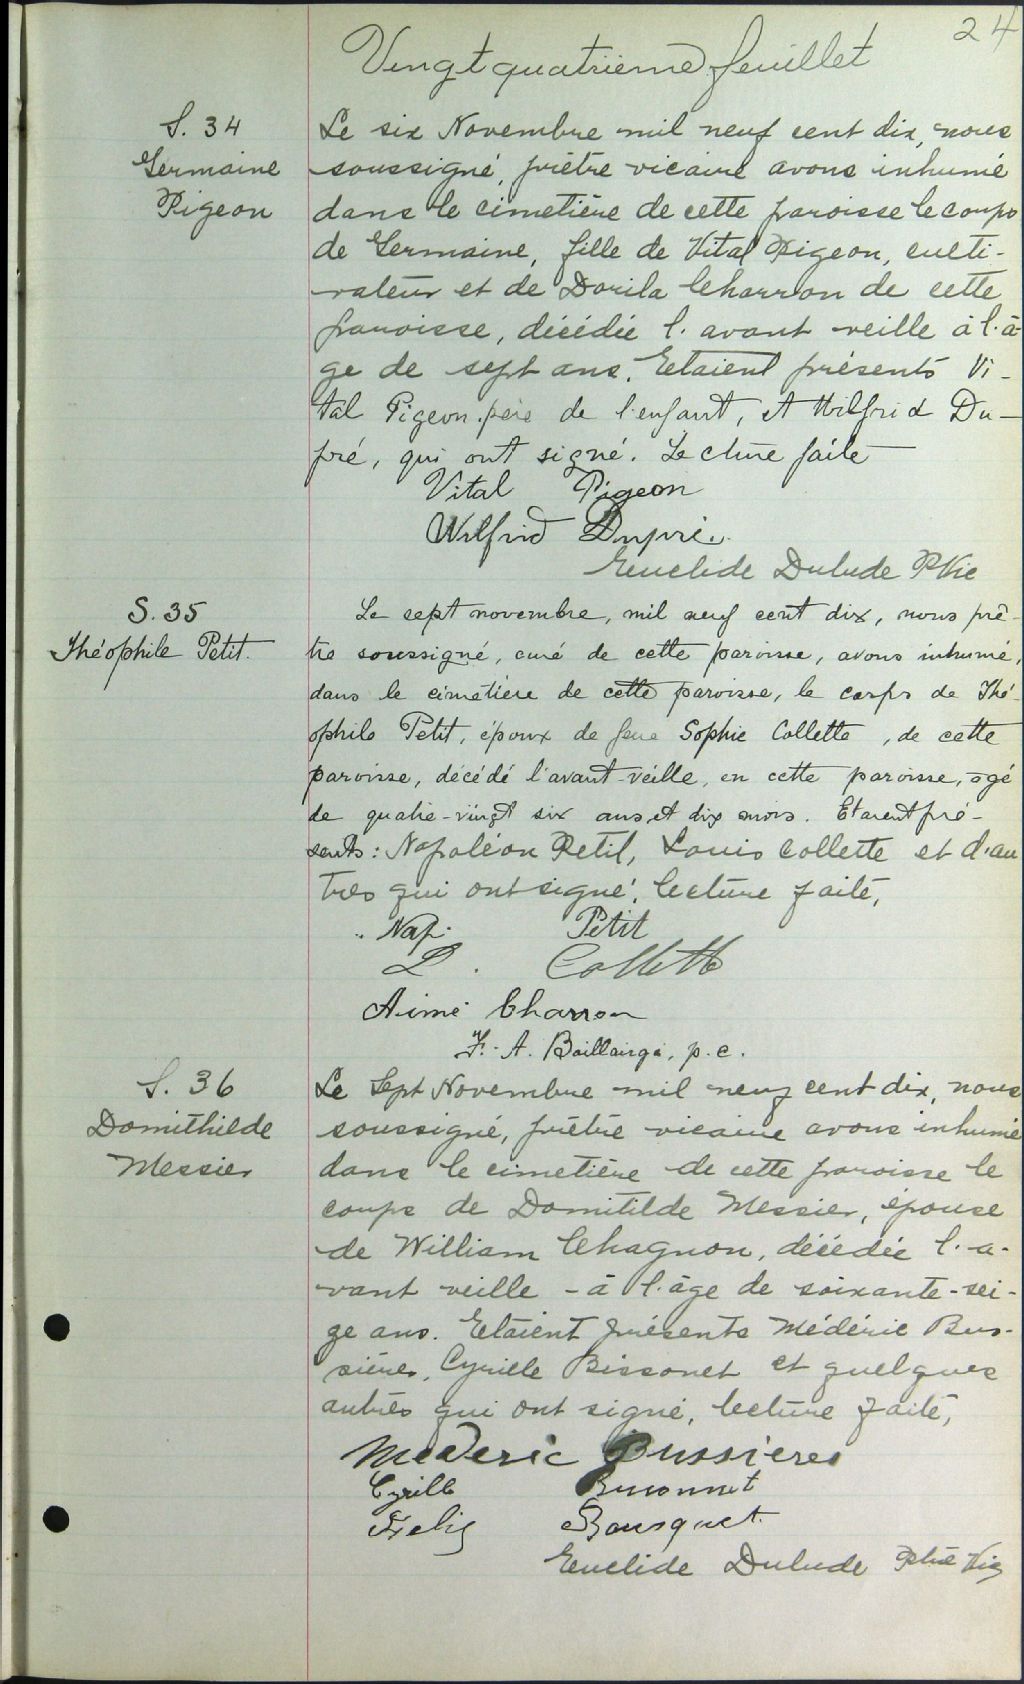 24
Vingt quatrième feuillet
S. 34
Germaine
Pigeon
Le six Novembre mil neuf cent dix, nous
soussigné, prêtre vicaire avons inhumé
dans le cimetière de cette paroisse le corps
de Germaine, fille de Vital Pigeon, culti-
vateur et de Dorila Charron de cette
paroisse, décédée l'avant veille à l'â-
ge de sept ans. Etaient présents Vi-
tal Pigeon père de l'enfant, et Wilfrid Du-
pré, qui ont signé. Lecture faite
Vital Pigeon
Wilfrid Dupré.
Euclide Dulude P Vic
S. 35
Théophile Petit.
Le sept novembre, mil neuf cent dix, nous prê-
tre soussigné, curé de cette paroisse, avons inhumé,
dans le cimetière de cette paroisse, le corps de Thé-
ophile Petit, époux de feue Sophie Collette, de cette
paroisse, décédé l'avant-veille, en cette paroisse, âgé
de quatre-vingt six ans et dix mois. Etaient pré-
sents: Napoléon Petit, Louis Collette et d'au
tres qui ont signé, lecture faite,
Nap. Petit
L. Collette
Aimé Charron
F.-A. Baillairgé, p.c.
S. 36
Domithilde
Messier
Le Sept Novembre mil neuf cent dix, nous
soussigné, prêtre vicaire avons inhumé
dans le cimetière de cette paroisse le
corps de Domitilde Messier, épouse
de William Chagnon, décédée l'a-
vant veille - à l'âge de soixante-sei-
ze ans. Etaient présents Médéric Bus-
sières, Cyrille Bissonet et quelques
autres qui ont signé, lecture faite,
Mederic Bussieres
Cyrille Bissonnet
Felix Bousquet.
Euclide Dulude Ptre Vic